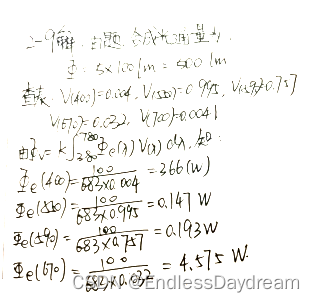 2-9解：由题，合成光通量为
Φ = 5×100 lm = 500 lm
查表，V(400)=0.004，V(550)=0.995，V(590)=0.757
V(670)=0.032，V(700)=0.0041
由Φv = K∫₃₈₀⁷⁸⁰ Φe(λ) V(λ) dλ，知：
Φe(400) = 100/683×0.004 = 366(W)
Φe(550) = 100/683×0.995 = 0.147 W
Φe(590) = 100/683×0.757 = 0.193 W
Φe(670) = 100/683×0.032 = 4.575 W.
CSDN @EndlessDaydream